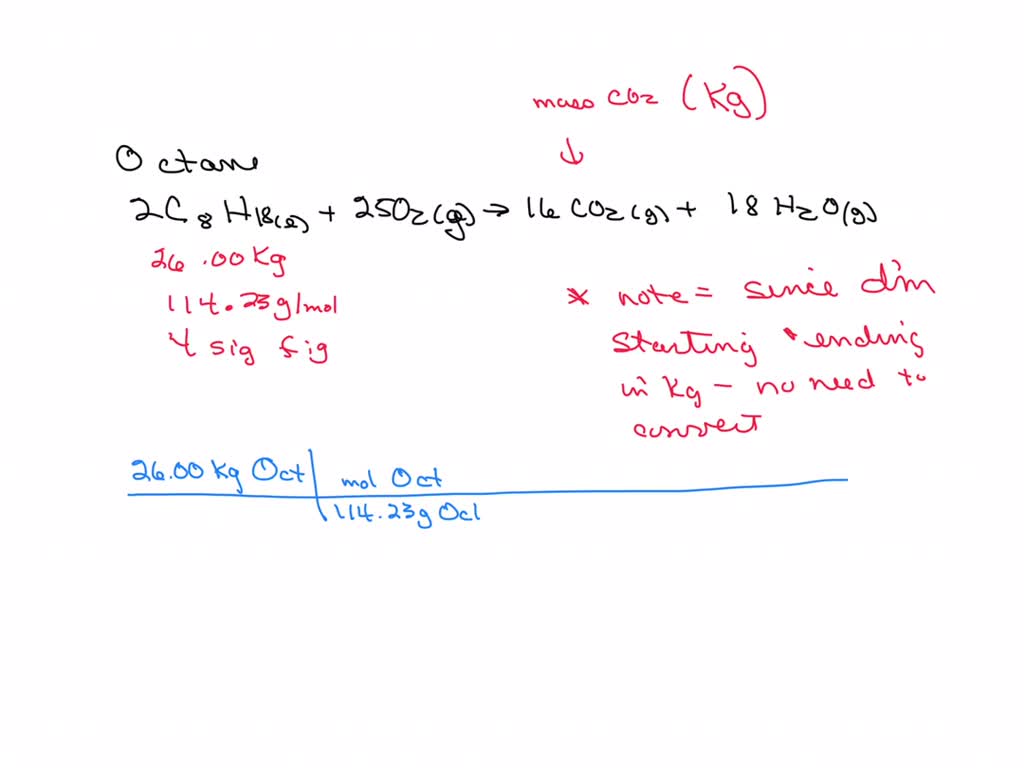 mass CO2 (Kg)
↓
Octane
2C8H18(l) + 25O2(g) → 16 CO2(g) + 18 H2O(g)
26.00 Kg
114.23 g/mol
4 sig fig
* note = since I'm
starting * ending
in Kg - no need to
convert
26.00 Kg Oct | mol Oct
114.23g Oct